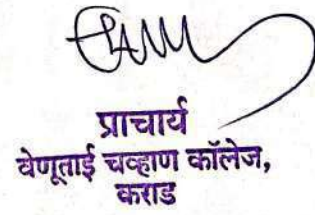 प्राचार्य
वेणूताई चव्हाण कॉलेज,
कराड